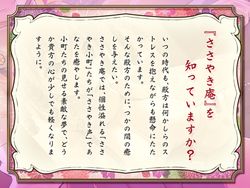 『ささやき庵』を
知っていますか?
いつの時代も、殿方は何かしらのス
トレスを抱えながらも懸命にたた
かっています。
そんな殿方のために、つかの間の癒
しを添えたい。
ささやき庵では、個性溢れる「ささ
やき小町」たちが「ささやき声」であ
なたを癒やします。
小町たちの見せる素敵な夢で、どう
か貴方の心が少しでも軽くなりま
すように。